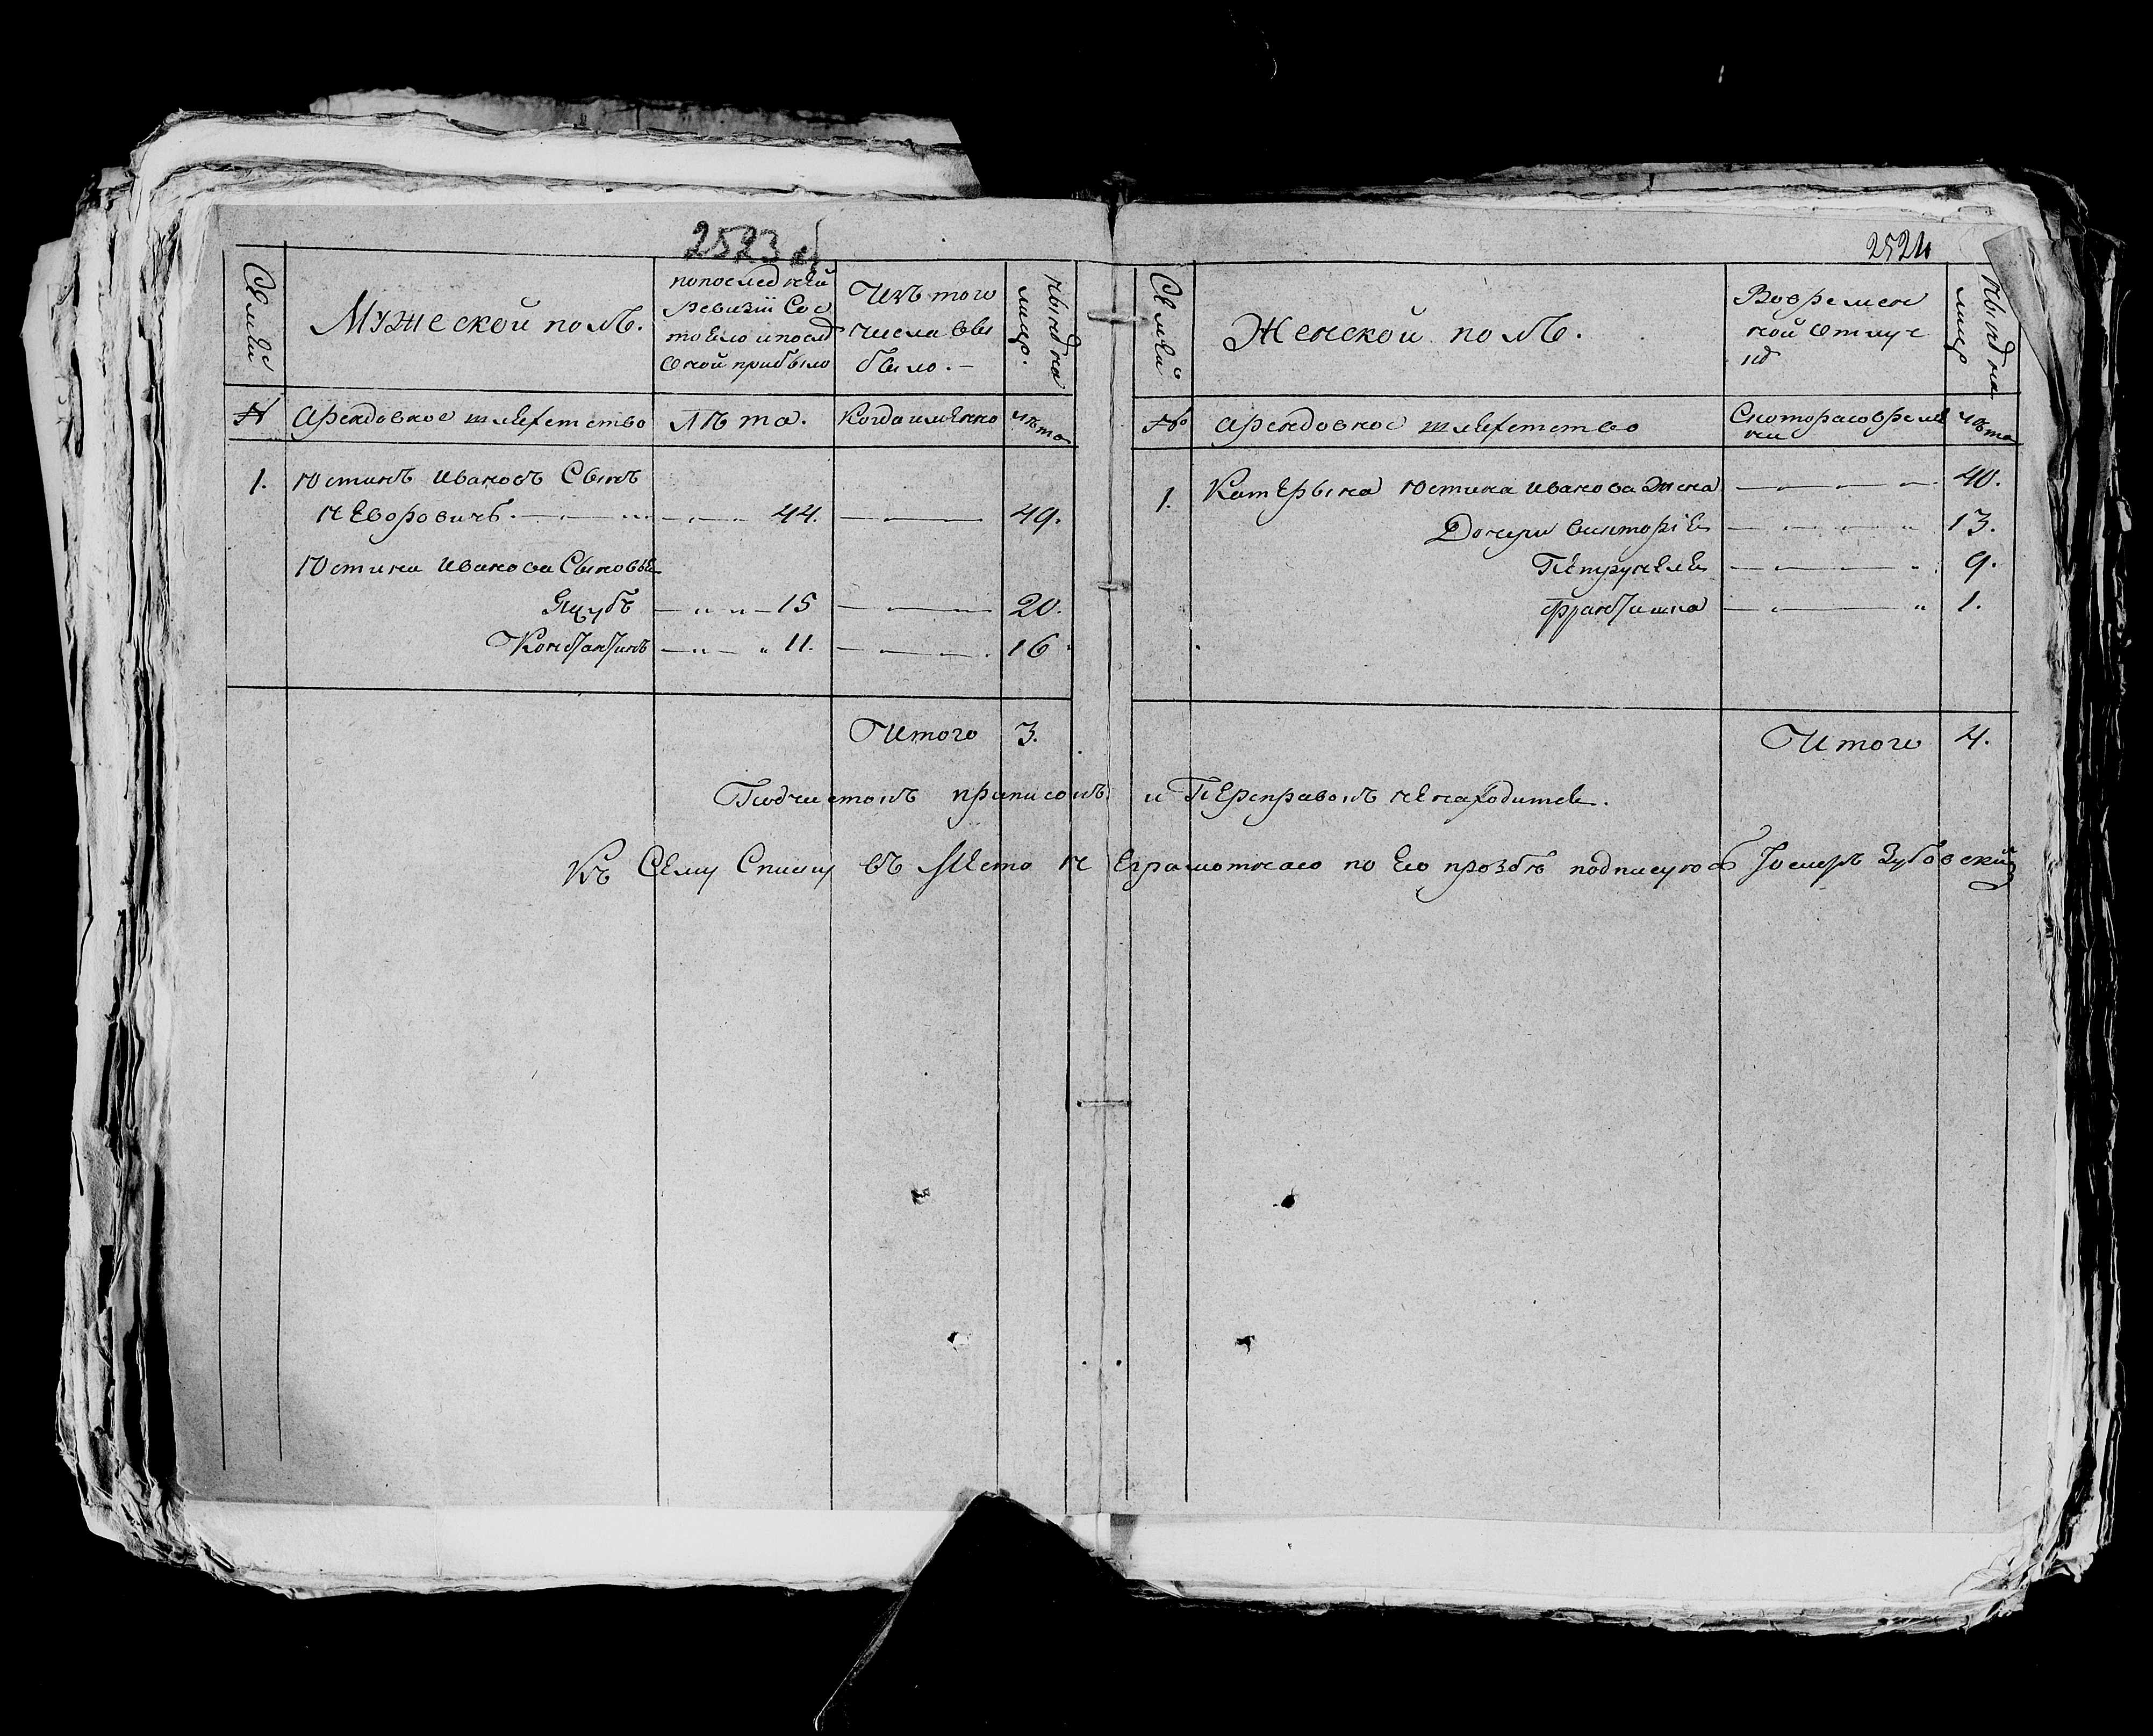 2523
Семьи
Мужеской полъ.
попоследней
ревизіи Сос
тояло и послѣ
оной прибыло
Изъ того
числа вы
было.
Ныне на
лицо.
№
арендовное шляхетство
лѣта.
Когда именно
лѣта
1.
Юстинъ Ивановъ Сынъ
44.
49.
Юстина Иванова Сыновья
Якубъ
15
20.
Константинъ
11.
16
Итого
3.
2524
Семьи
Женской полъ.
Вовремен
ной отлуч
Ныне на
лицо
№
арендовное шляхетство
Скоторого време
ни
лѣта
1.
Катерына Юстина Иванова жена
40.
Дочери Викторія
13.
Петрунеля
9.
Францишка
1.
Итого
4.
Подчистокъ приписокъ и Переправокъ не находится.
Къ Сему Списку въ Место не еграмотнаго по Его прозбѣ подписуюсь Іосифъ Зубовскій